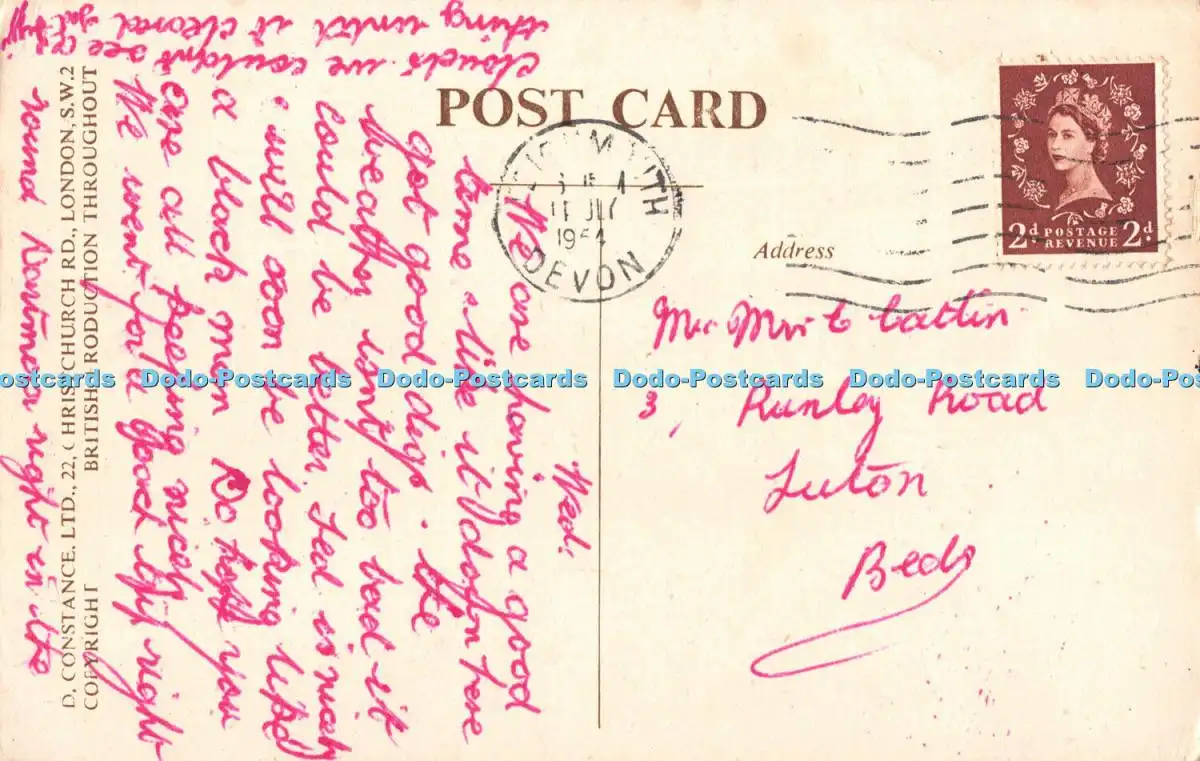 POST CARD
Address
DEVON
11 JLY
1954
2d POSTAGE REVENUE 2d
Mr Mrs C Cattin
3, Runley Road
Luton
Beds
Wed.
We are having a good
time & like it down here
Got good digs. the
weather isnt too bad it
could be better. Ted is nicely
& will soon be looking like
a black man Do hope you
are all keeping nicely
We went for a good trip right
round Dartmoor right in the
clouds we couldn't see a
thing until it cleared
D. CONSTANCE. LTD., 22, CHRISTCHURCH RD., LONDON, S.W.2
COPYRIGHT BRITISH PRODUCTION THROUGHOUT
Dodo-Postcards Dodo-Postcards Dodo-Postcards Dodo-Postcards Dodo-Postcards